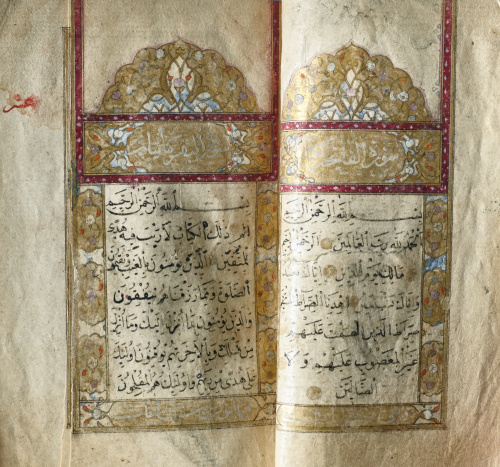 سورة الفاتحة
بسم الله الرحمن الرحيم
الحمد لله رب العالمين الرحمن الرحيم
مالك يوم الدين اياك نعبد
واياك نستعين اهدنا الصراط المستقيم
صراط الذين انعمت عليهم
غير المغضوب عليهم ولا
الضالين
البقرة
بسم الله الرحمن الرحيم
الم ذلك الكتاب لا ريب فيه هدى
للمتقين الذين يؤمنون بالغيب ويقيمون
الصلوة ومما رزقناهم ينفقون
والذين يؤمنون بما انزل اليك وما انزل
من قبلك وبالاخرة هم يوقنون اولئك
على هدى من ربهم واولئك هم المفلحون